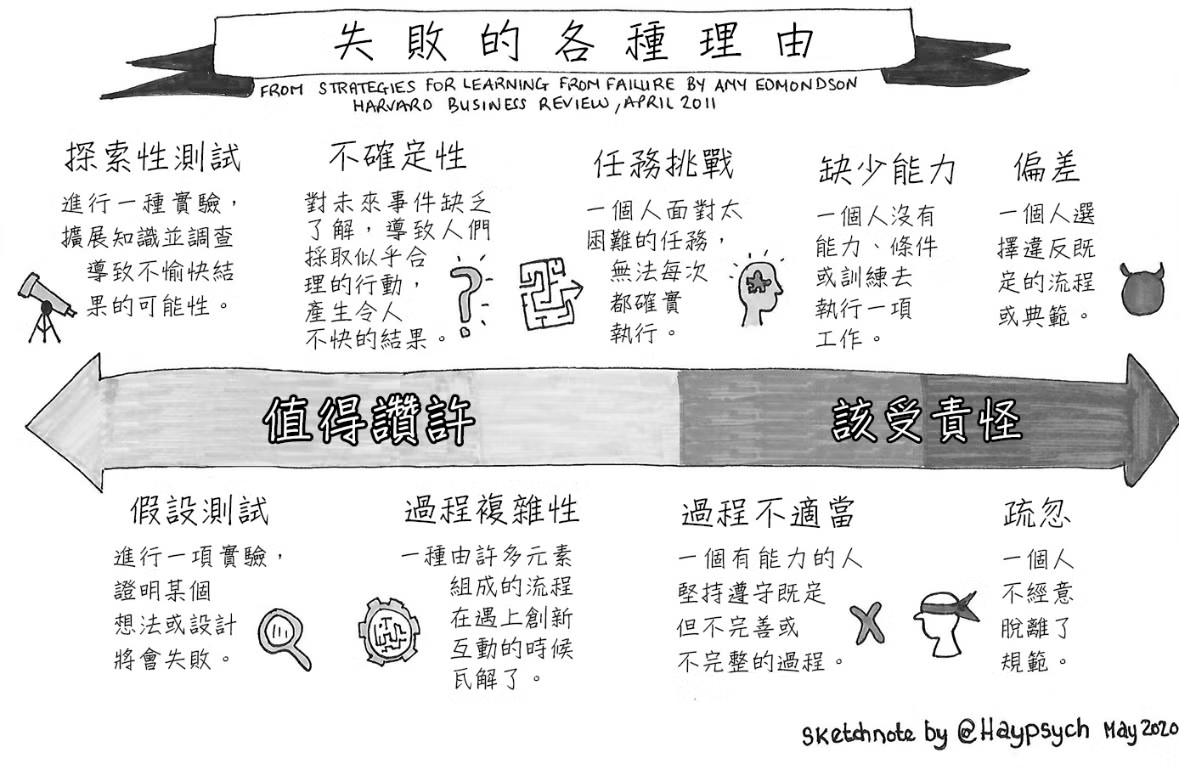 失敗的各種理由
FROM STRATEGIES FOR LEARNING FROM FAILURE BY AMY EDMONDSON
HARVARD BUSINESS REVIEW, APRIL 2011
探索性測試
進行一種實驗，
擴展知識並調查
導致不愉快結
果的可能性。
不確定性
對未來事件缺乏
了解，導致人們
採取似乎合
理的行動，
產生令人
不快的結果。
任務挑戰
一個人面對太
困難的任務，
無法每次
都確實
執行。
缺少能力
一個人沒有
能力、條件
或訓練去
執行一項
工作。
偏差
一個人選
擇違反既
定的流程
或典範。
值得讚許
該受責怪
假設測試
進行一項實驗，
證明某個
想法或設計
將會失敗。
過程複雜性
一種由許多元素
組成的流程
在遇上創新
互動的時候
瓦解了。
過程不適當
一個有能力的人
堅持遵守既定
但不完善或
不完整的過程。
疏忽
一個人
不經意
脫離了
規範。
Sketchnote by @Haypsych May 2020